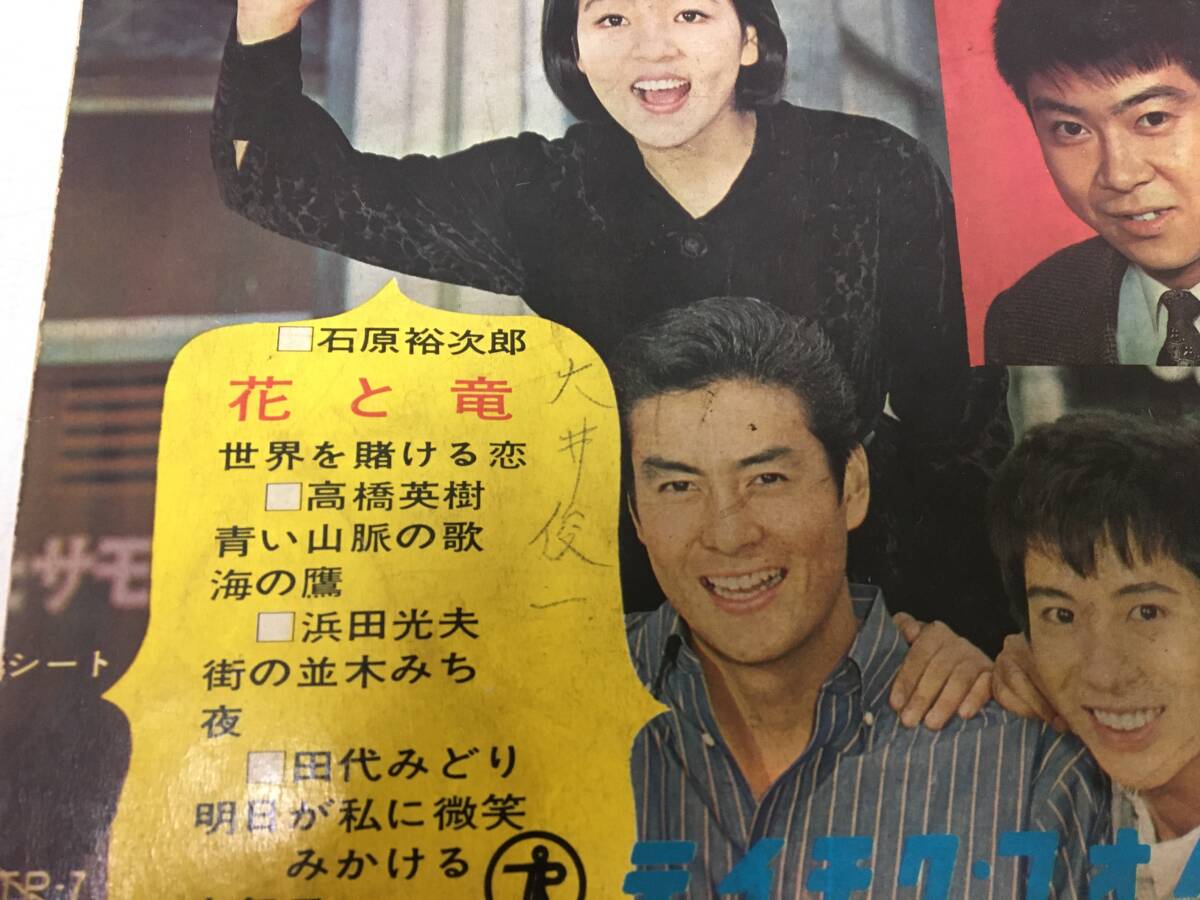 □石原裕次郎
花と竜
世界を賭ける恋
□高橋英樹
青い山脈の歌
海の鷹
□浜田光夫
街の並木みち
夜
□田代みどり
明日が私に微笑
みかける
大井俊二
サモ
シート
TP-7
テイチク・フォ